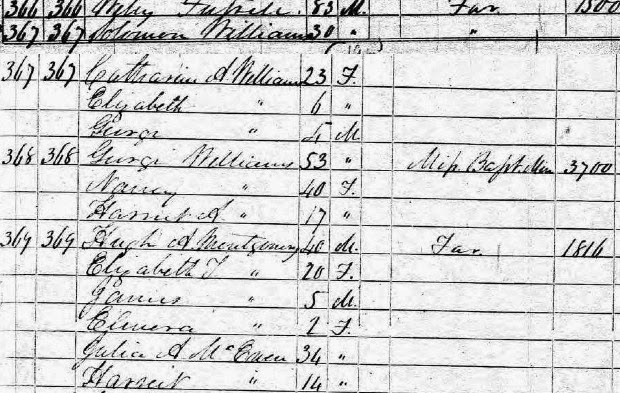 366 366 Wiley 83 M. Far 1500
367 367 Solomon Williams 30 " "
367 367 Catharine A Williams 23 F.
Elizabeth " 6 "
George " 4 M
368 368 George Williams 53 " Miss Bapt. Min 3700
Nancy " 40 F.
Harriet A " 17 "
369 369 Hugh A Montgomery 40 M. Far. 1816
Elizabeth T " 20 F.
James " 5 M.
Elmira " 2 F.
Julia A McEwen 34 "
Harriet " 14 "